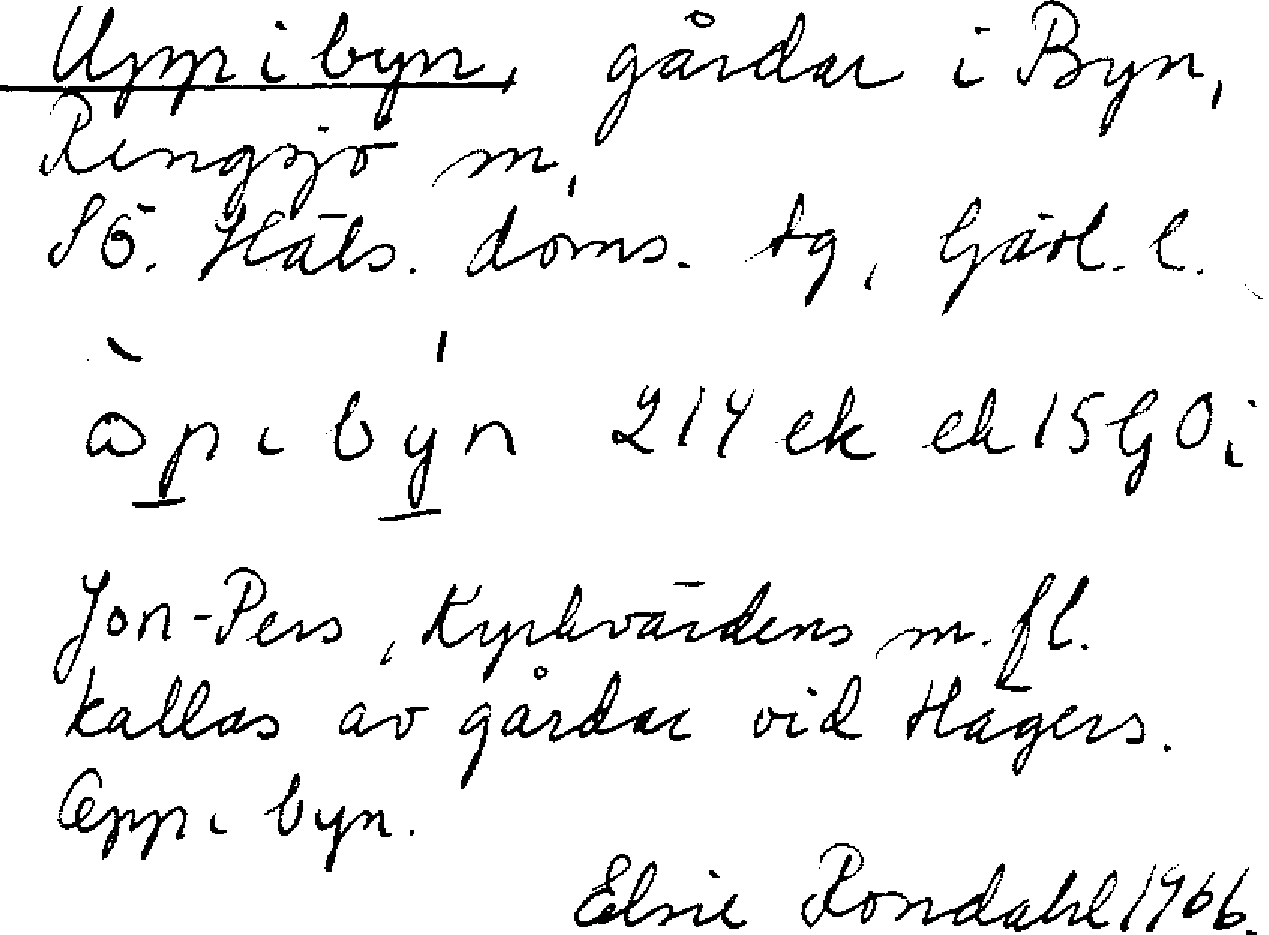 Upp i byn, gårdar i Byn,
Rengsjö m,
Sö. Häls. doms. tg, Gävl. l.
åp i byn 214 ek ek 15 GOi
Jon-Pers, Kyrkvärdens m. fl.
kallas av gårdar vid Hägers.
Opp i byn.
Elsie Rondahl 1966.